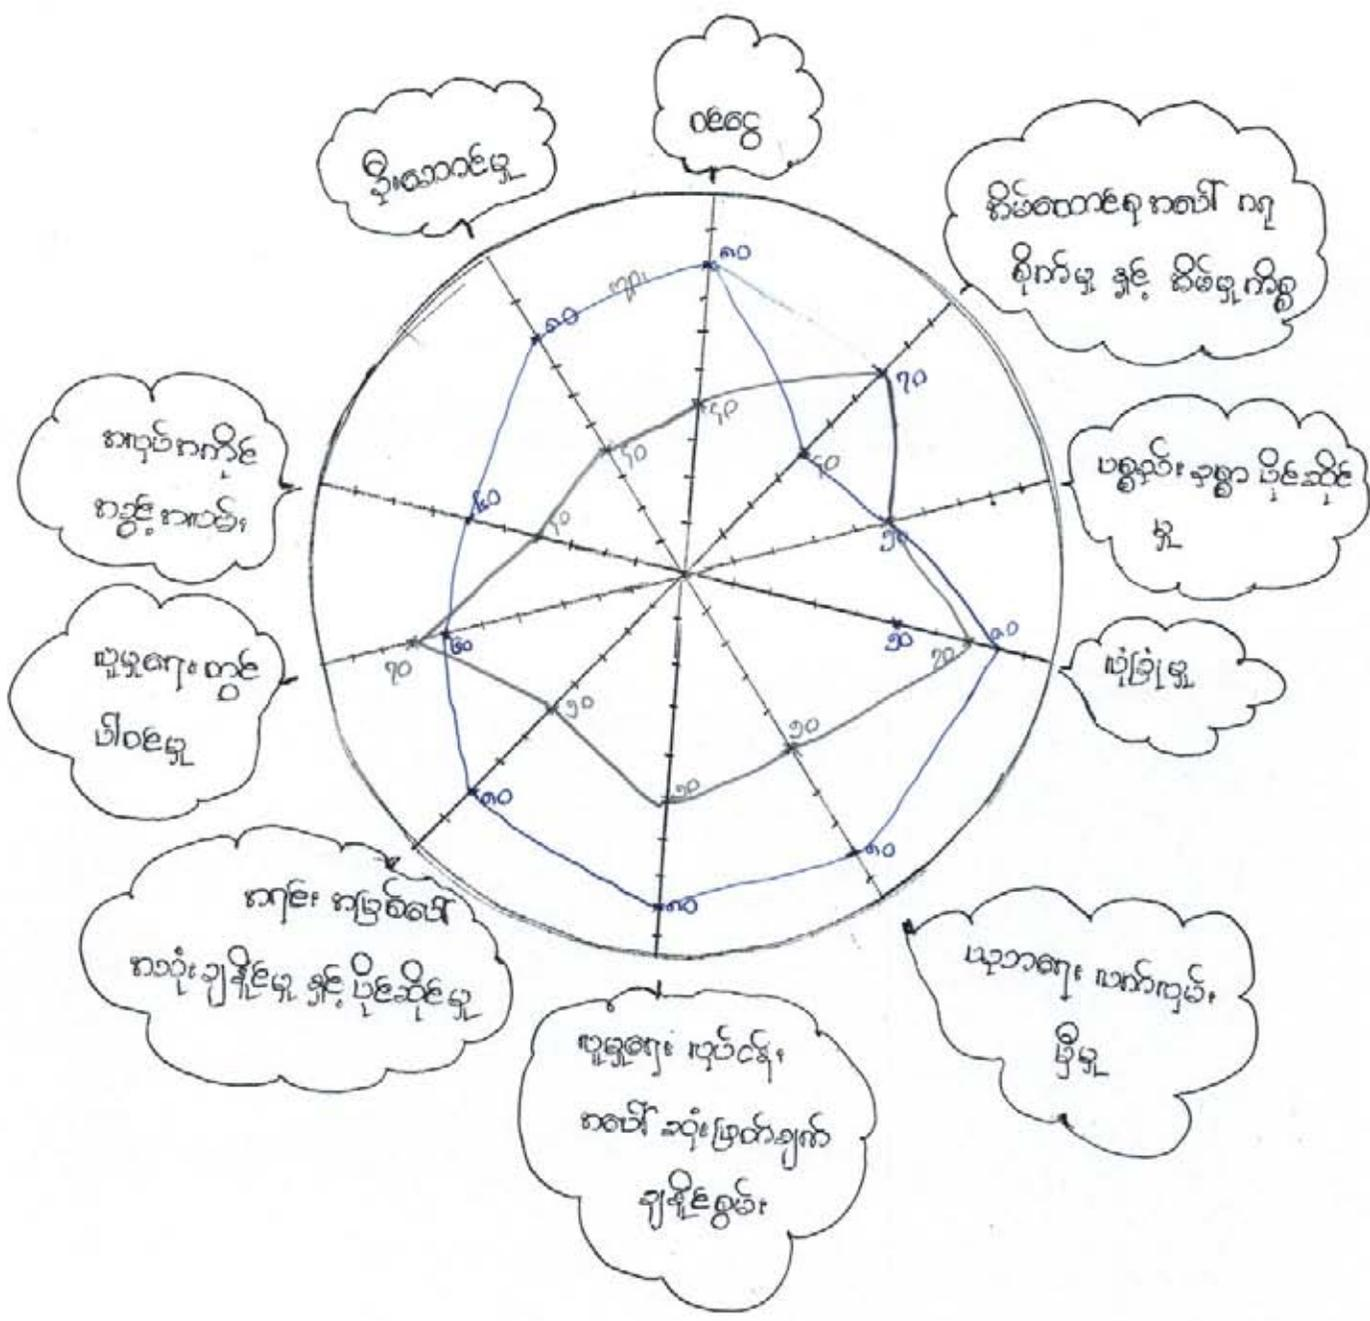 ဝင်ငွေ
ဦးဆောင်မှု
အိမ်ထောင်စုအပေါ် ဂရု
စိုက်မှု နှင့် အိမ်မှုကိစ္စ
ပစ္စည်းဥစ္စာ ပိုင်ဆိုင်
မှု
လုံခြုံမှု
ပညာရေး လက်လှမ်း
မှီမှု
လူမှုရေး လုပ်ငန်း
အပေါ် ဆုံးဖြတ်ချက်
ချနိုင်စွမ်း
အရင်း အမြစ်ပေါ်
အသုံးချနိုင်မှု နှင့် ပိုင်ဆိုင်မှု
လူမှုရေးတွင်
ပါဝင်မှု
အလုပ်အကိုင်
အခွင့်အလမ်း
၈၀
၈၀
၇၀
၄၀
၄၀
၄၀
၆၀
၄၀
၅၀
၅၀
၈၀
၇၀
၆၀
၇၀
၅၀
၅၀
၅၀
၈၀
၈၀
၈၀